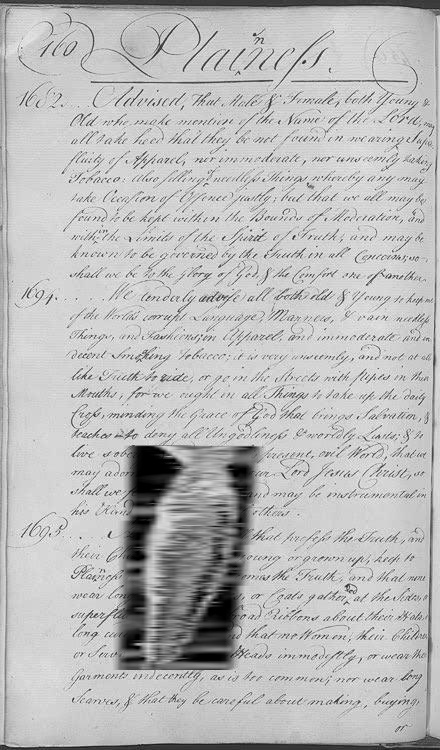 160 Plainness.
1682... Advised, that Male & Female, both Young &
Old who make mention of the Name of the Lord, may
all take heed that they be not found in wearing Super
fluity of Apparel, nor immoderate, nor unseemly taking
Tobacco: also selling needless Things whereby any may
take Occasion of Offence justly; but that we all may be
found to be kept within the Bounds of Moderation, and
within the Limits of the Spirit of Truth; and may be
known to be governed by the Truth in all Concerns, so
shall we be to the Glory of God, & the Comfort one of another.
1694..... We tenderly advise all both old & Young to keep out
of the World's corrupt Language, Manners, & vain needless
Things, and Fashions, in Apparel; and immoderate and in
decent Smoking Tobacco; it is very unseemly, and not at all
like Truth to ride, or go in the Streets with pipes in their
Mouths; for we ought in all Things to take up the daily
Cross, minding the Grace of God that brings Salvation, &
teaches to deny all Ungodliness & worldly Lusts; & to
live sobe present, evil World, that we
may ador our Lord Jesus Christ, so
shall we and may be instrumental in
his Hand others.
1695. that profess the Truth, and
their Ch young or grown up, keep to
Plainness comes the Truth, and that none
wear long , or Coats gather'd at the Sides, or
superfl oad Ribbons about their Hats, or
long cur d that no Women, their Children
or Serv Heads immodestly, or wear their
Garments indecently, as is too common; nor wear long
Scarves, & that they be careful about making, buying,
or